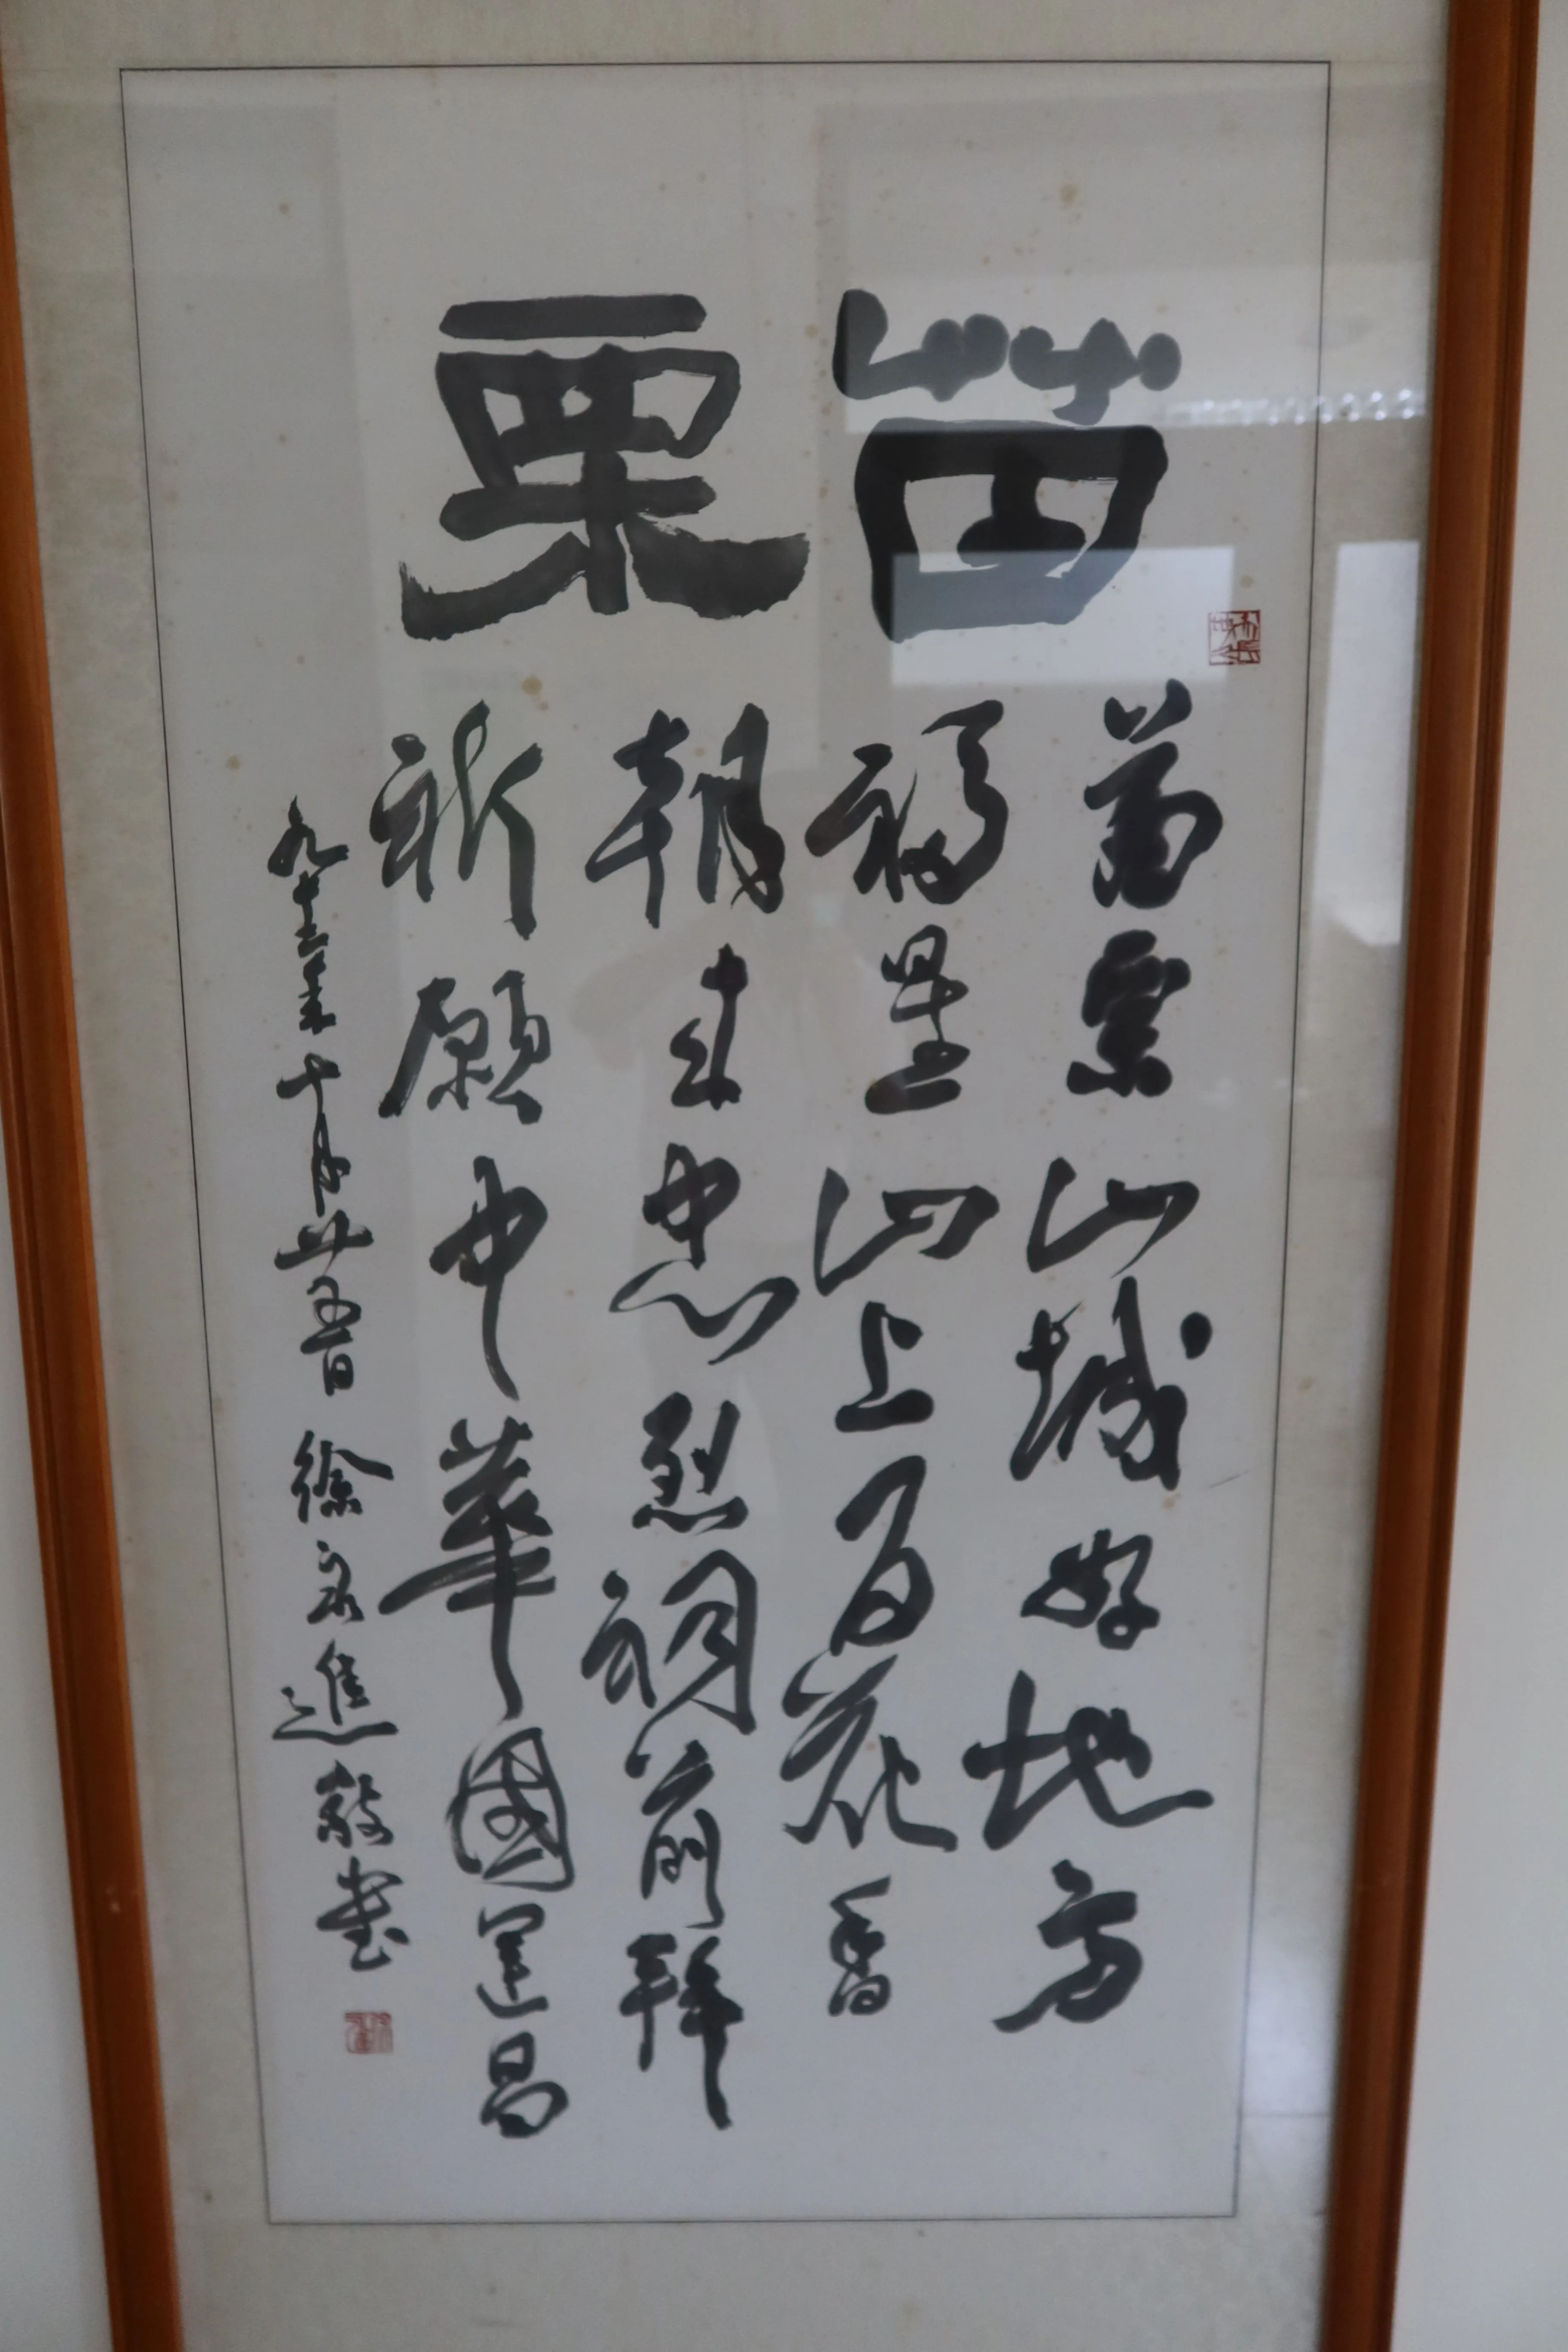 苗栗
苗栗山城好地方
福星山上百花香
朝來忠烈祠前拜
祈願中華國運昌
九十三年十月廿五日 徐永進敬書